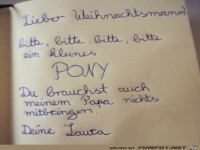 Lieber Weihnachtsmann!
bitte, bitte, bitte, bitte
ein kleines
PONY
Du brauchst auch
meinem Papa nichts
mitbringen.
Deine Laura